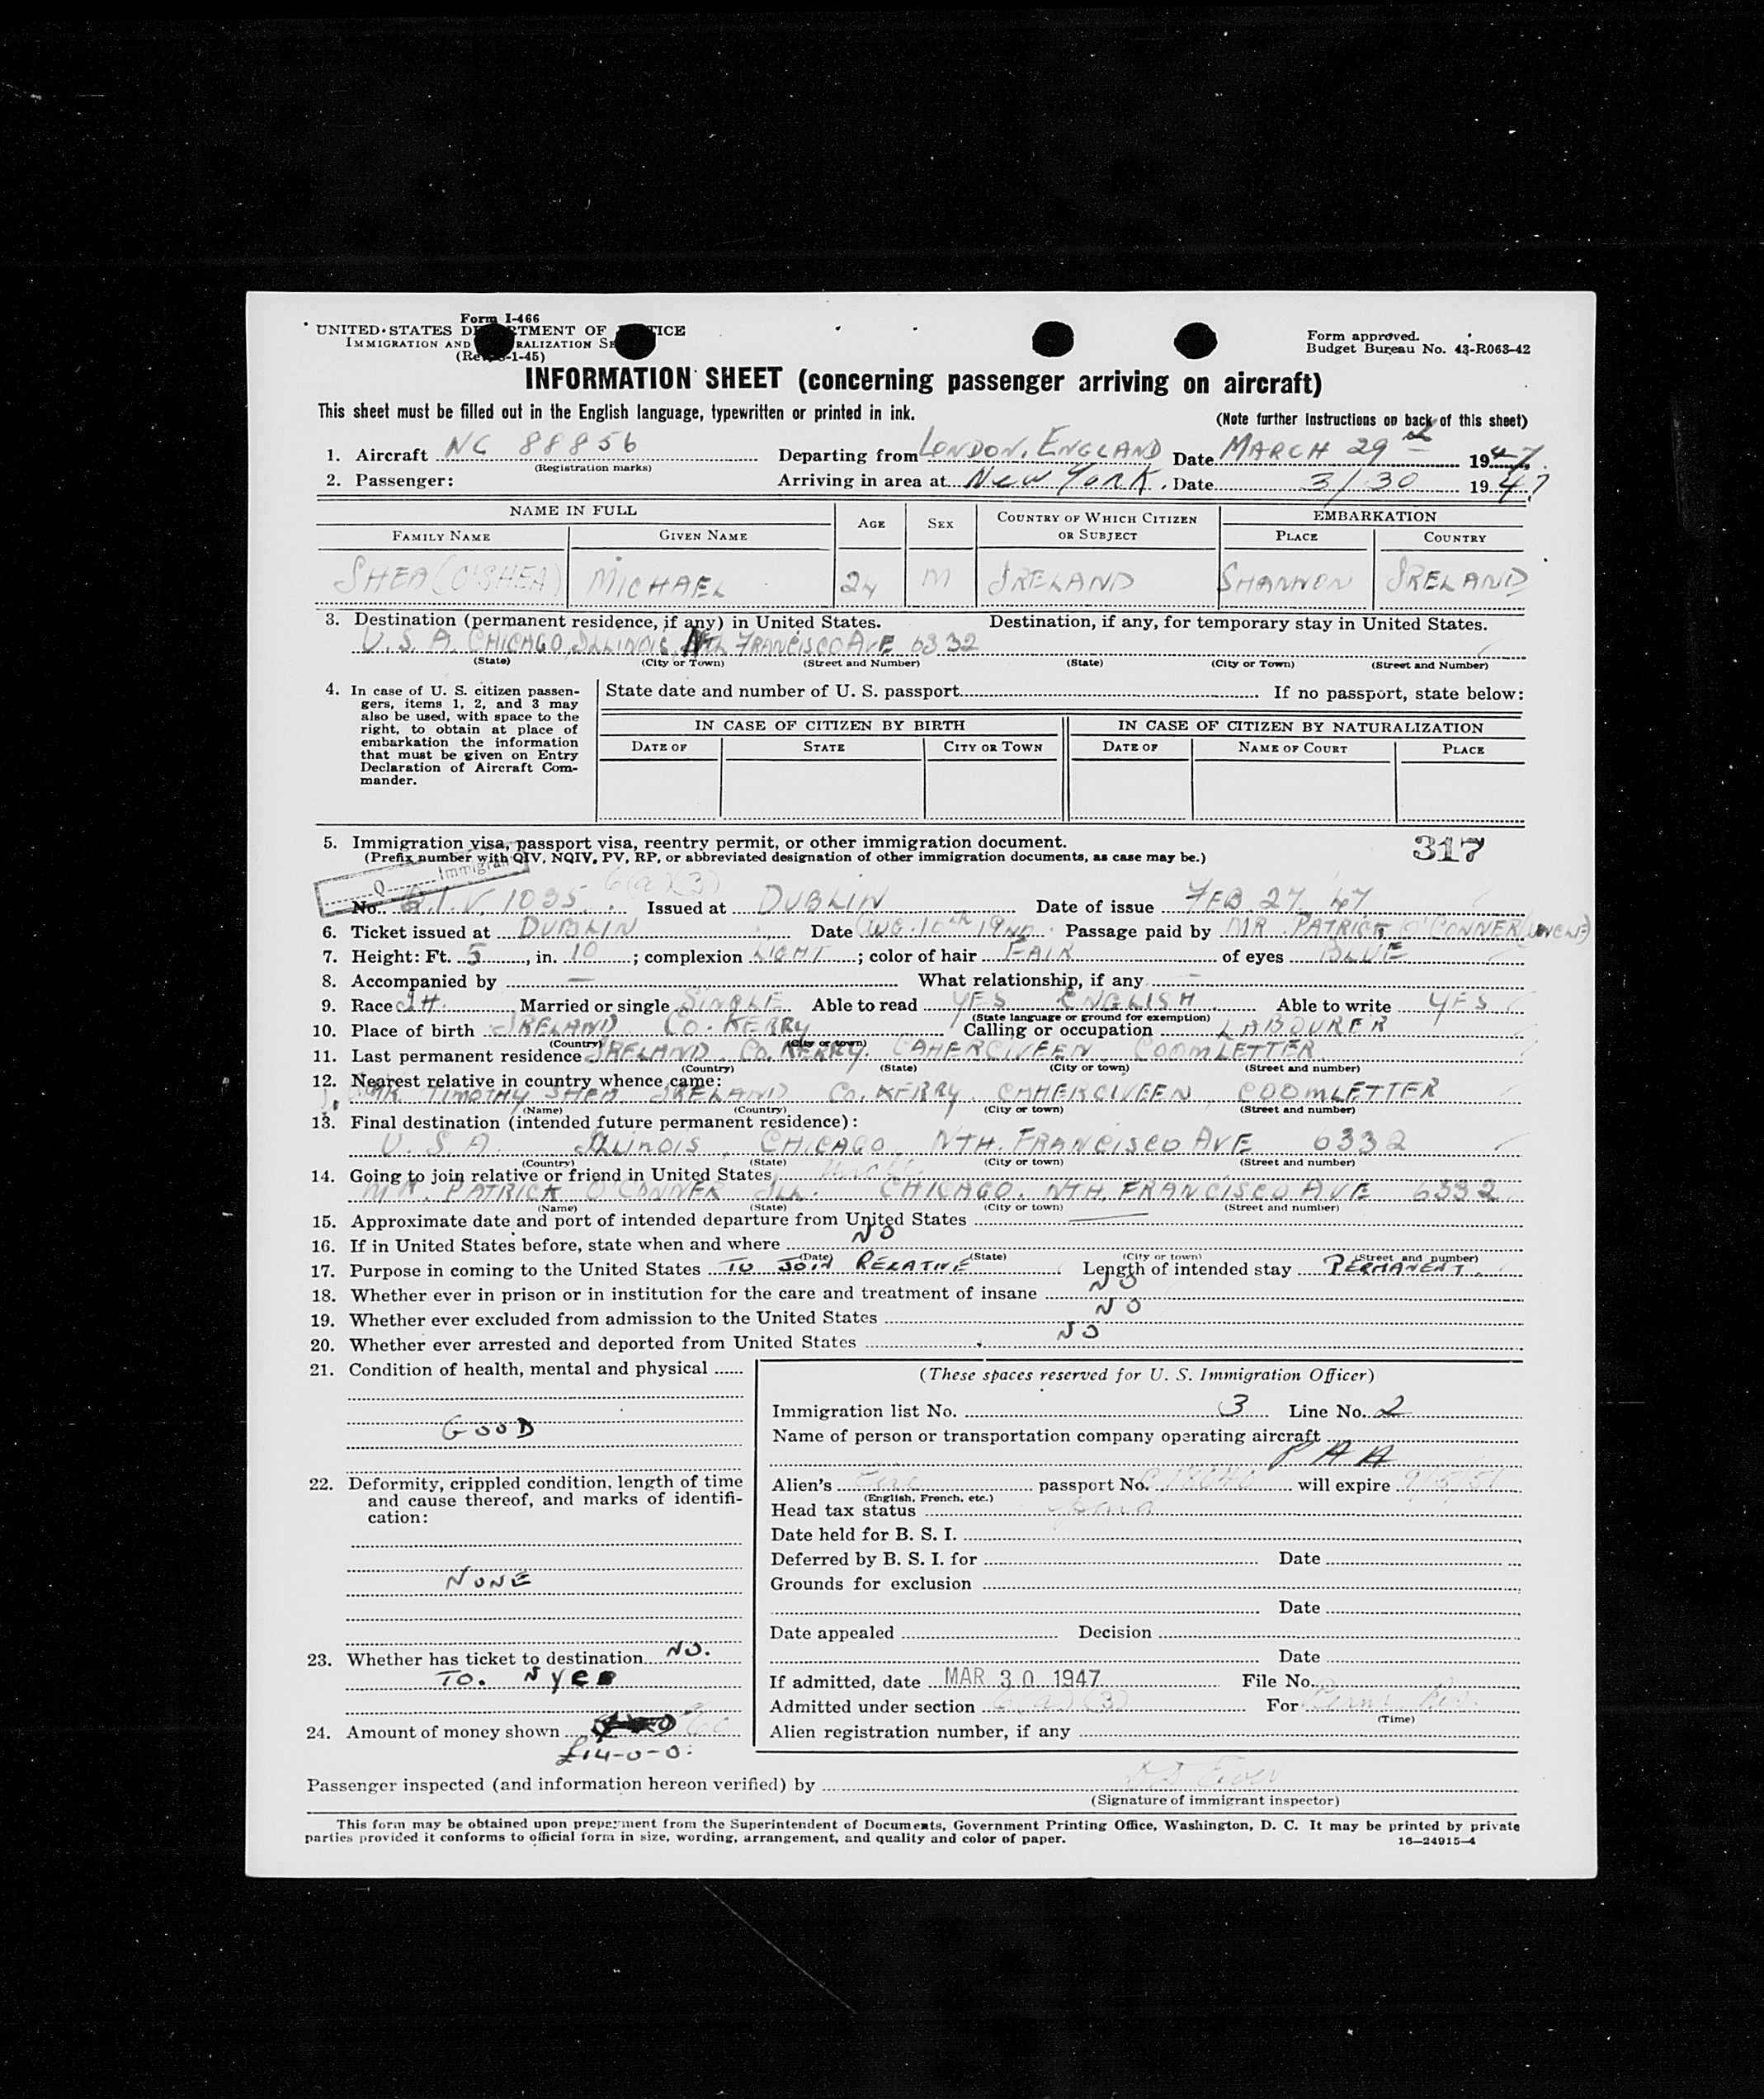 Form I-466
UNITED STATES DEPARTMENT OF JUSTICE
IMMIGRATION AND NATURALIZATION SE
(Rev. -1-45)
Form approved.
Budget Bureau No. 43-R063-42
INFORMATION SHEET (concerning passenger arriving on aircraft)
This sheet must be filled out in the English language, typewritten or printed in ink.
(Note further instructions on back of this sheet)
1. Aircraft NC 88856 Departing from LONDON, ENGLAND Date MARCH 29 1947
(Registration marks)
2. Passenger: Arriving in area at New York. Date 3/30 1947
NAME IN FULL AGE SEX COUNTRY OF WHICH CITIZEN OR SUBJECT EMBARKATION
FAMILY NAME GIVEN NAME PLACE COUNTRY
SHEA (O'SHEA) MICHAEL 24 M IRELAND SHANNON IRELAND
3. Destination (permanent residence, if any) in United States. Destination, if any, for temporary stay in United States.
U. S. A. CHICAGO, ILLINOIS, NTH FRANCISCO AVE 6332
(State) (City or Town) (Street and Number) (State) (City or Town) (Street and Number)
4. In case of U. S. citizen passengers, items 1, 2, and 3 may
also be used, with space to the
right, to obtain at place of
embarkation the information
that must be given on Entry
Declaration of Aircraft Commander.
State date and number of U. S. passport If no passport, state below:
IN CASE OF CITIZEN BY BIRTH IN CASE OF CITIZEN BY NATURALIZATION
DATE OF STATE CITY OR TOWN DATE OF NAME OF COURT PLACE
5. Immigration visa, passport visa, reentry permit, or other immigration document.
(Prefix number with QIV, NQIV, PV, RP, or abbreviated designation of other immigration documents, as case may be.)
317
Q Immigrant
6(a)(3)
No. Q.I.V. 1035 Issued at DUBLIN Date of issue FEB 27 47
6. Ticket issued at DUBLIN Date AUG. 10th Passage paid by MR PATRICK O'CONNER (UNCLE)
7. Height: Ft. 5, in. 10; complexion LIGHT; color of hair FAIR of eyes BLUE
8. Accompanied by — What relationship, if any —
9. Race IH. Married or single SINGLE Able to read YES ENGLISH Able to write YES
(State language or ground for exemption)
10. Place of birth IRELAND CO. KERRY Calling or occupation LABOURER
(Country) (City or town)
11. Last permanent residence IRELAND. CO. KERRY. CAHERCIVEEN COOMLETTER
(Country) (State) (City or town) (Street and number)
12. Nearest relative in country whence came:
MR TIMOTHY SHEA IRELAND CO. KERRY. CAHERCIVEEN, COOMLETTER
(Name) (Country) (City or town) (Street and number)
13. Final destination (intended future permanent residence):
U. S. A. ILLINOIS, CHICAGO NTH. FRANCISCO AVE 6332
(Country) (State) (City or town) (Street and number)
14. Going to join relative or friend in United States Uncle
MR. PATRICK O'CONNER ILL. CHICAGO. NTH. FRANCISCO AVE 6332
(Name) (State) (City or town) (Street and number)
15. Approximate date and port of intended departure from United States —
16. If in United States before, state when and where NO
(Date) (State) (City or town) (Street and number)
17. Purpose in coming to the United States TO JOIN RELATIVE Length of intended stay PERMANENT.
18. Whether ever in prison or in institution for the care and treatment of insane NO
19. Whether ever excluded from admission to the United States NO
20. Whether ever arrested and deported from United States NO
21. Condition of health, mental and physical
GOOD
22. Deformity, crippled condition, length of time
and cause thereof, and marks of identification:
NONE
23. Whether has ticket to destination NO.
TO. NYCO
24. Amount of money shown
£14-0-0.
(These spaces reserved for U. S. Immigration Officer)
Immigration list No. 3 Line No. 2
Name of person or transportation company operating aircraft
PAA
Alien's Eire passport No. will expire 9/5/51
(English, French, etc.)
Head tax status
Date held for B. S. I.
Deferred by B. S. I. for Date
Grounds for exclusion
Date
Date appealed Decision
Date
If admitted, date MAR 30 1947 File No.
Admitted under section 6(a)(3) For Perm. Res.
(Time)
Alien registration number, if any
Passenger inspected (and information hereon verified) by
(Signature of immigrant inspector)
This form may be obtained upon prepayment from the Superintendent of Documents, Government Printing Office, Washington, D. C. It may be printed by private
parties provided it conforms to official form in size, wording, arrangement, and quality and color of paper.
16—24915-4